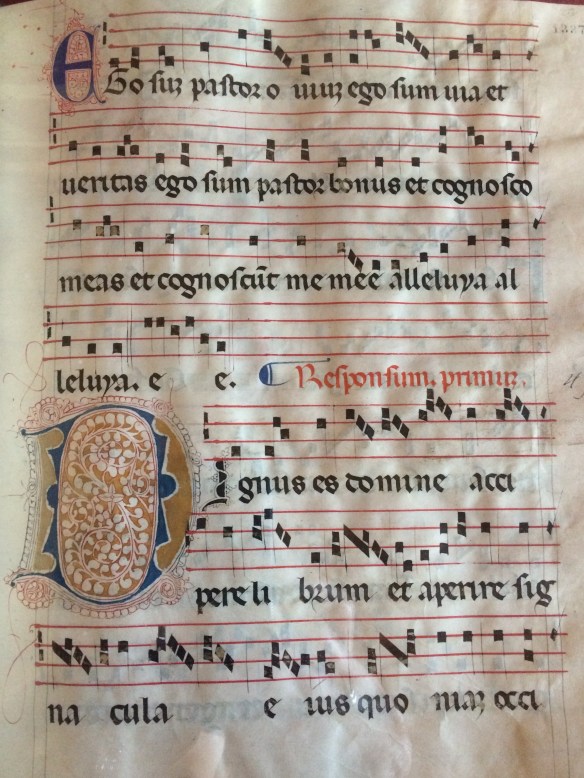 Ego sūꝫ pastor o uiuꝫ ego sum uia et
ueritas ego sum pastor bonus et cognosco
meas et cognoscūt me meē alleluya al
leluya. e e. Responsum. primuꝫ.
Dignus es domine acci
pere li brum et aperire sig
na cula e ius quo niaꝫ occi